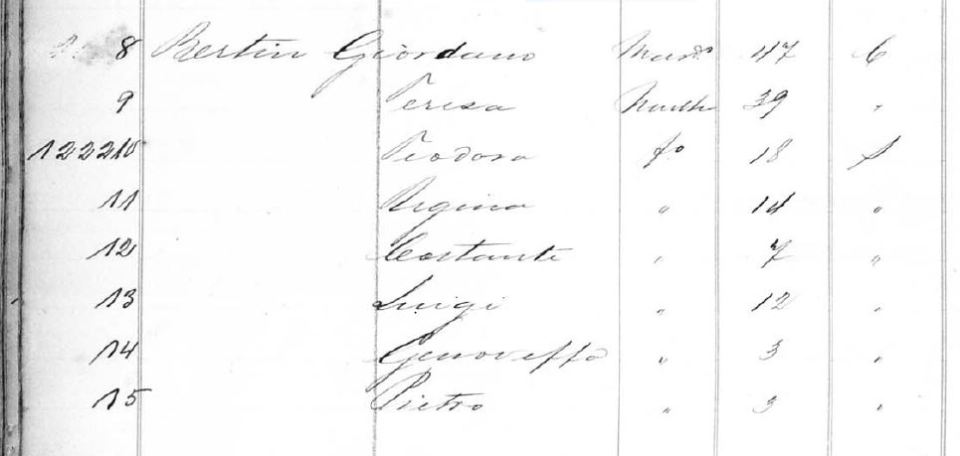 8 Bertin Giordano Mar.º 47 C
9 Teresa Mulh 39 "
12210 Teodora fº 18 S
11 Regina " 14 "
12 Costante " 7 "
13 Luigi " 12 "
14 Genoveffa " 3 "
15 Pietro " 3 "